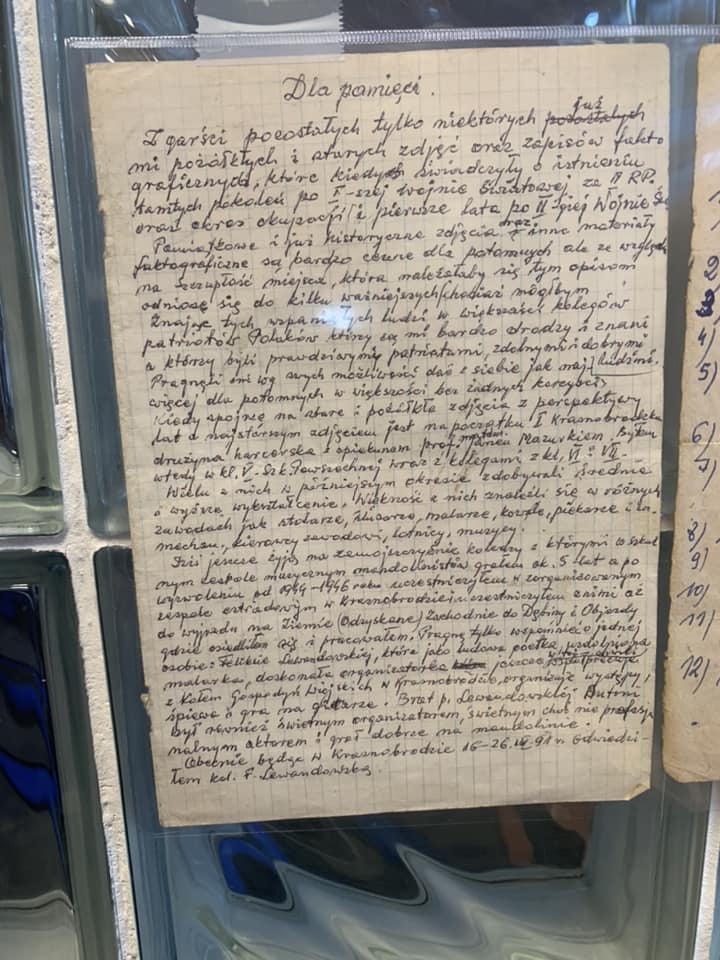 Dla pamięci.
Z garści pozostałych tylko niektórych już pozostałych
mi pożółkłych i starych zdjęć oraz zapisów fakto
graficznych, które kiedyś świadczyły o istnieniu
tamtych pokoleń po I-szej Wojnie Światowej za II RP.
oraz okres okupacji i pierwsze lata po II-giej Wojnie Św
Pamiątkowe i już historyczne zdjęcia oraz inne materiały
faktograficzne są bardzo cenne dla potomnych ale ze względu
na szczupłość miejsca, która należałaby się tym opisom
odniosę się do kilku ważniejszych chociaż mógłbym
Znając tych wspaniałych ludzi w większości kolegów
patriotów Polaków którzy są mi bardzo drodzy i znani
a którzy byli prawdziwymi patriotami, zdolnymi i dobrymi
ludźmi.
Pragnęli oni wg swych możliwości dać z siebie jak naj
więcej dla potomnych w większości bez żadnych korzyści
Kiedy spojrzę na stare i pożółkłe zdjęcia z perspektywy
lat a najstarszym zdjęciem jest na początku I Krasnobrodzka
drużyna harcerska z opiekunem prof. Janem Mazurkiem. Byłem
wtedy w kl. V. Szk. Powszechnej wraz z kolegami z kl. VI i VII-
Wielu z nich w późniejszym okresie zdobywali średnie
i wyższe wykształcenie. Większość z nich znaleźli się w różnych
zawodach jak stolarze, ślusarze, malarze, kowale, piekarze i in.
mechan., kierowcy zawodowi, lotnicy, muzycy.
Dziś jeszcze żyją na zamojszczyźnie koledzy z którymi w szkol
nym zespole muzycznym mandolinistów grałem ok. 5 lat a po
wyzwoleniu od 1944-1946 roku uczestniczyłem w zorganizowanym
zespole estradowym w Krasnobrodzie i uczestniczyłem z nimi aż
do wyjazdu na Ziemie (Odzyskane) Zachodnie do Dębiny i Objazdy
gdzie osiedliłem się i pracowałem. Pragnę tylko wspomnieć o jednej
osobie: Felicie Lewandowskiej, która jako ludowa poetka, uzdolniona
malarka, doskonała organizatorka jeszcze współpracuje
z Kołem Gospodyń Wiejskich w Krasnobrodzie, organizuje występy,
śpiewa i gra na gitarze. Brat p. Lewandowskiej Antoni
był również świetnym organizatorem, świetnym choć nie profesjo
nalnym aktorem i grał dobrze na mandolinie.
Obecnie będąc w Krasnobrodzie 16-26.VII.91 r. odwiedzi-
łem kol. F. Lewandowską.
2
3
4)
5)
6)
7)
8)
9)
10)
11)
12)